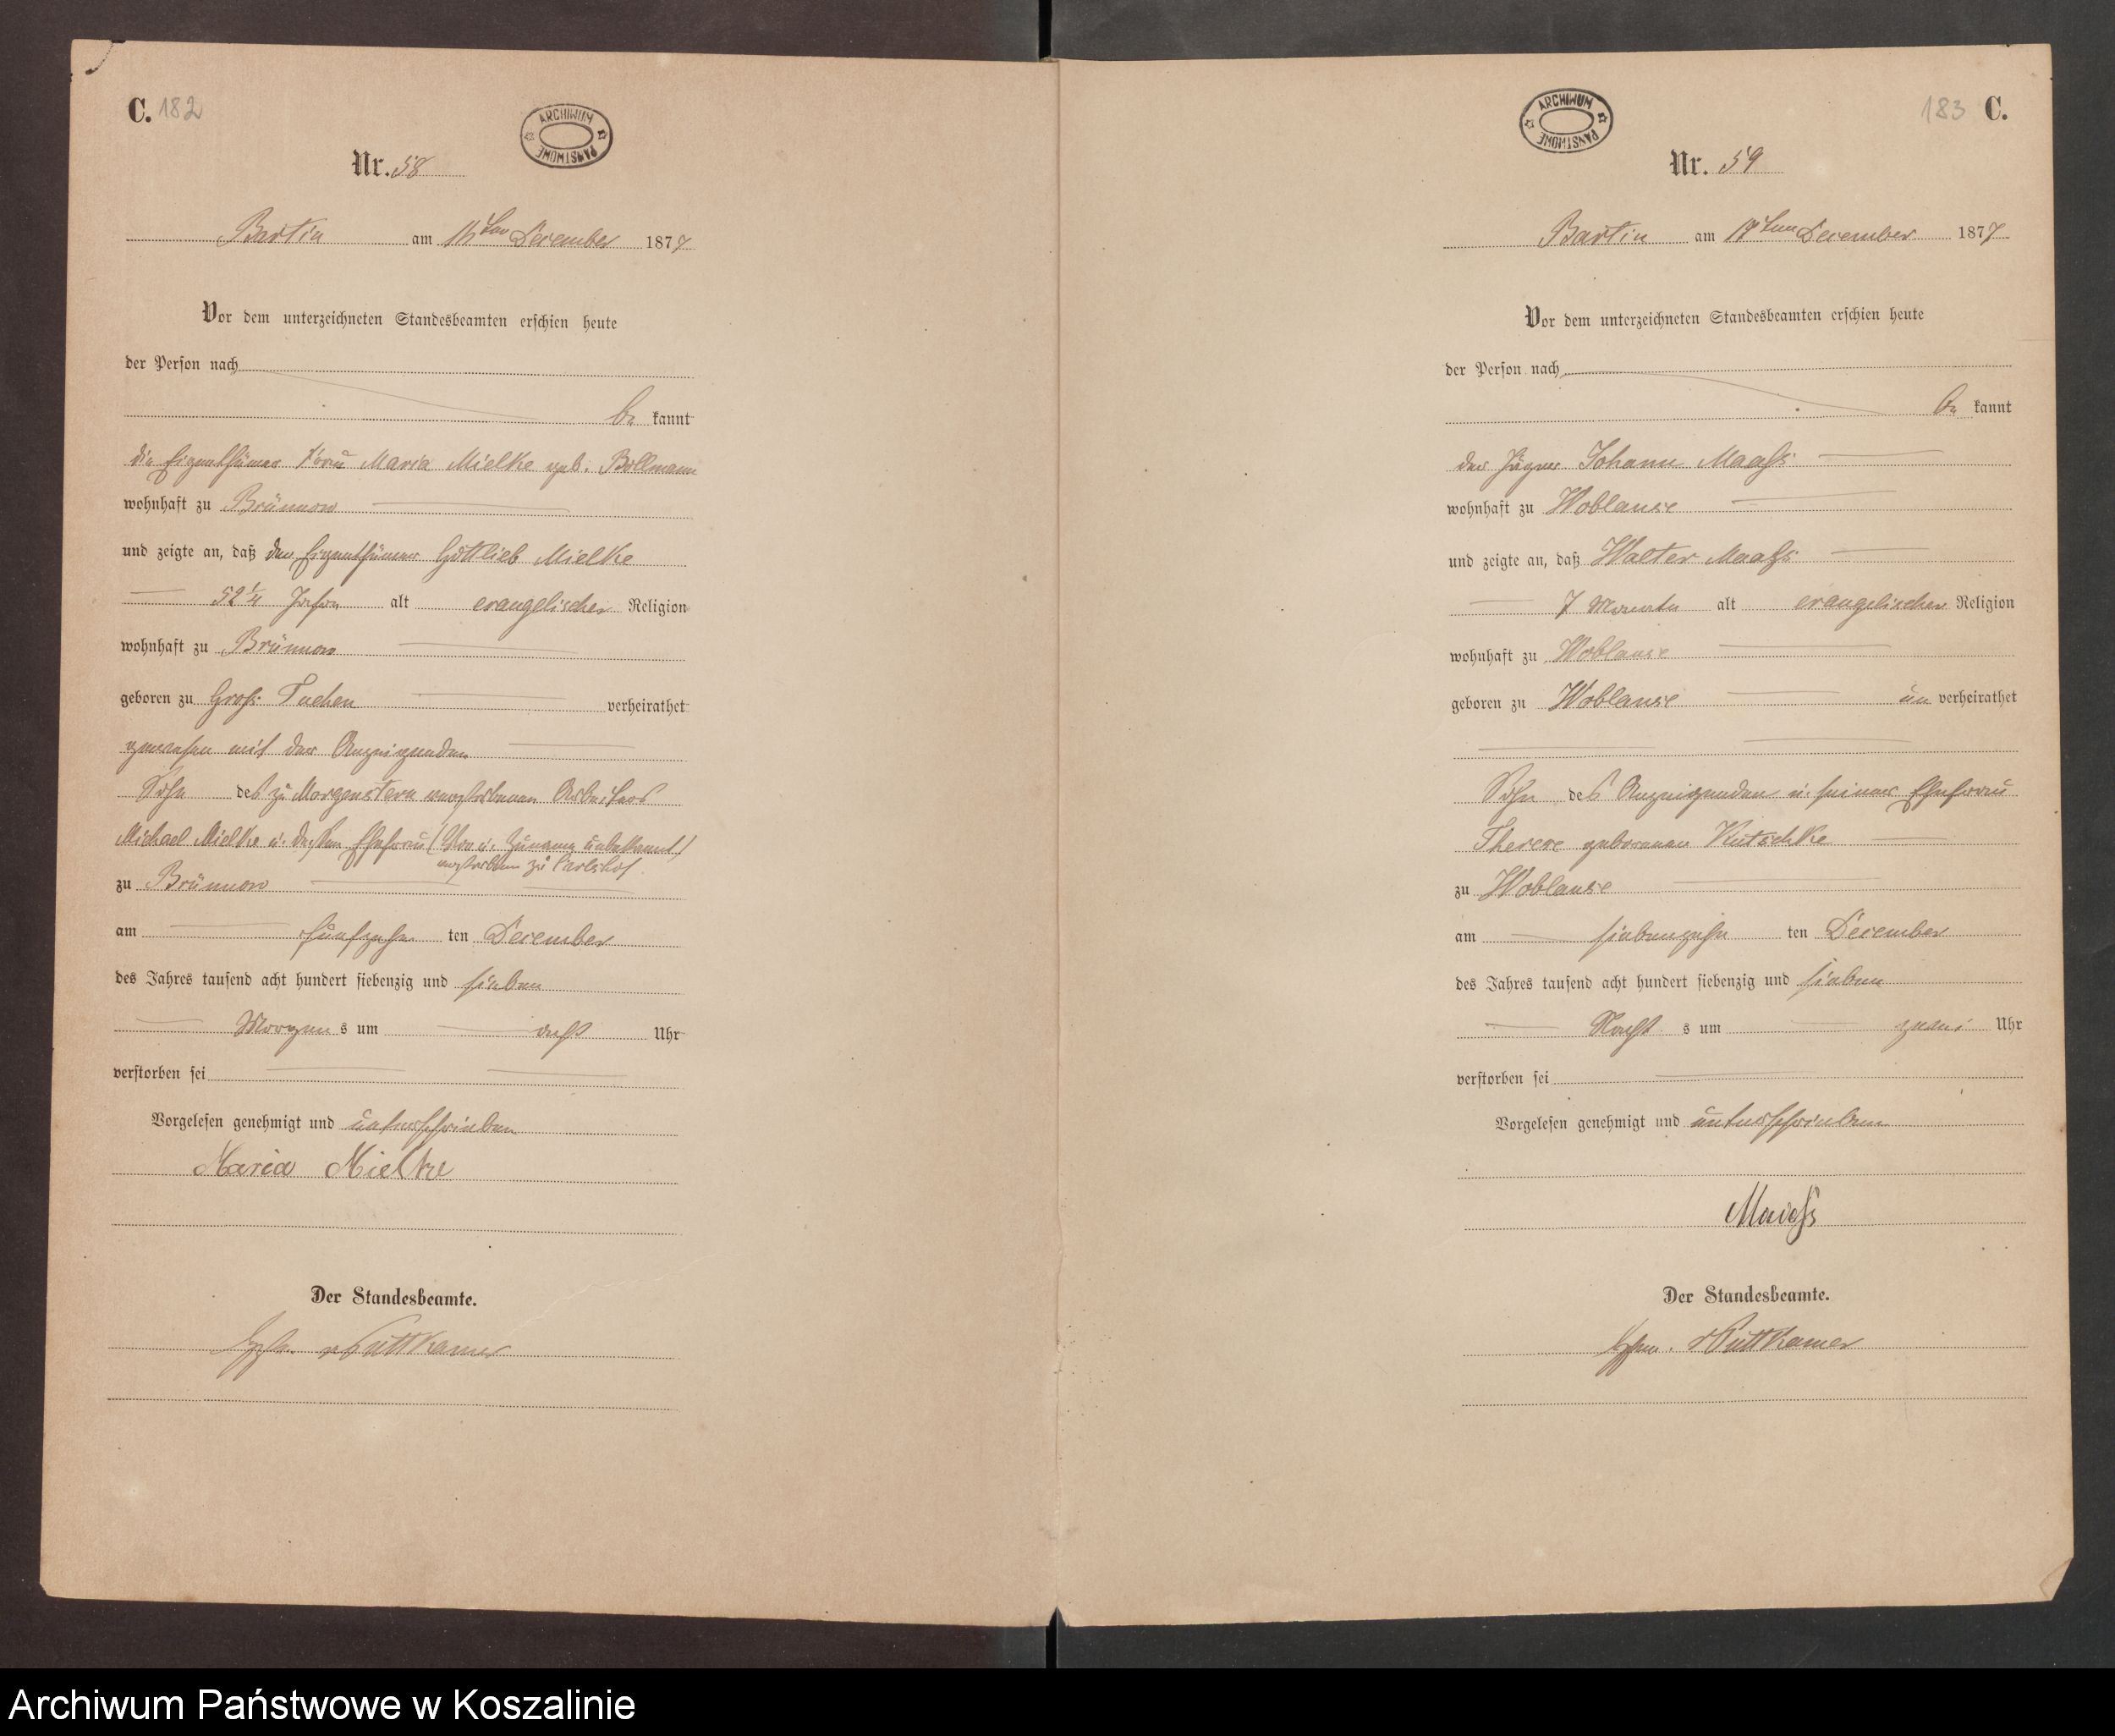 C. 182
ARCHIWUM PAŃSTWOWE
Nr. 58
Bartin am ten December 1877
Vor dem unterzeichneten Standesbeamten erschien heute
der Person nach
be kannt
die Eigenthümer Frau Maria Mielke geb. Böllmann
wohnhaft zu Brünnow
und zeigte an, daß der Eigenthümer Gottlieb Mielke
52 1/4 Jahre alt evangelischer Religion
wohnhaft zu Brünnow
geboren zu Groß Tuchen verheirathet
gewesen mit der Anzeigenden
Sohn des zu Morgenstern verstorbenen Arbeiters
Michael Mielke u. dessen Ehefrau (Vor u. Zuname unbekannt)
verstorben zu Carlshof
zu Brünnow
am fünfzehn ten December
des Jahres tausend acht hundert siebenzig und sieben
Morgens um acht Uhr
verstorben sei
Vorgelesen genehmigt und unterschrieben
Maria Mielke
Der Standesbeamte.
v Puttkamer
183 C.
ARCHIWUM PAŃSTWOWE
Nr. 59
Bartin am 17ten December 1877
Vor dem unterzeichneten Standesbeamten erschien heute
der Person nach
be kannt
der Jäger Johann Maaß
wohnhaft zu Woblanse
und zeigte an, daß Walter Maaß
7 Monate alt evangelischer Religion
wohnhaft zu Woblanse
geboren zu Woblanse un verheirathet
Sohn des Anzeigenden u. seiner Ehefrau
Therese geborenen Kutschke
zu Woblanse
am siebenzehn ten December
des Jahres tausend acht hundert siebenzig und sieben
Nacht s um zwei Uhr
verstorben sei
Vorgelesen genehmigt und unterschrieben
Maaß
Der Standesbeamte.
v Puttkamer
Archiwum Państwowe w Koszalinie